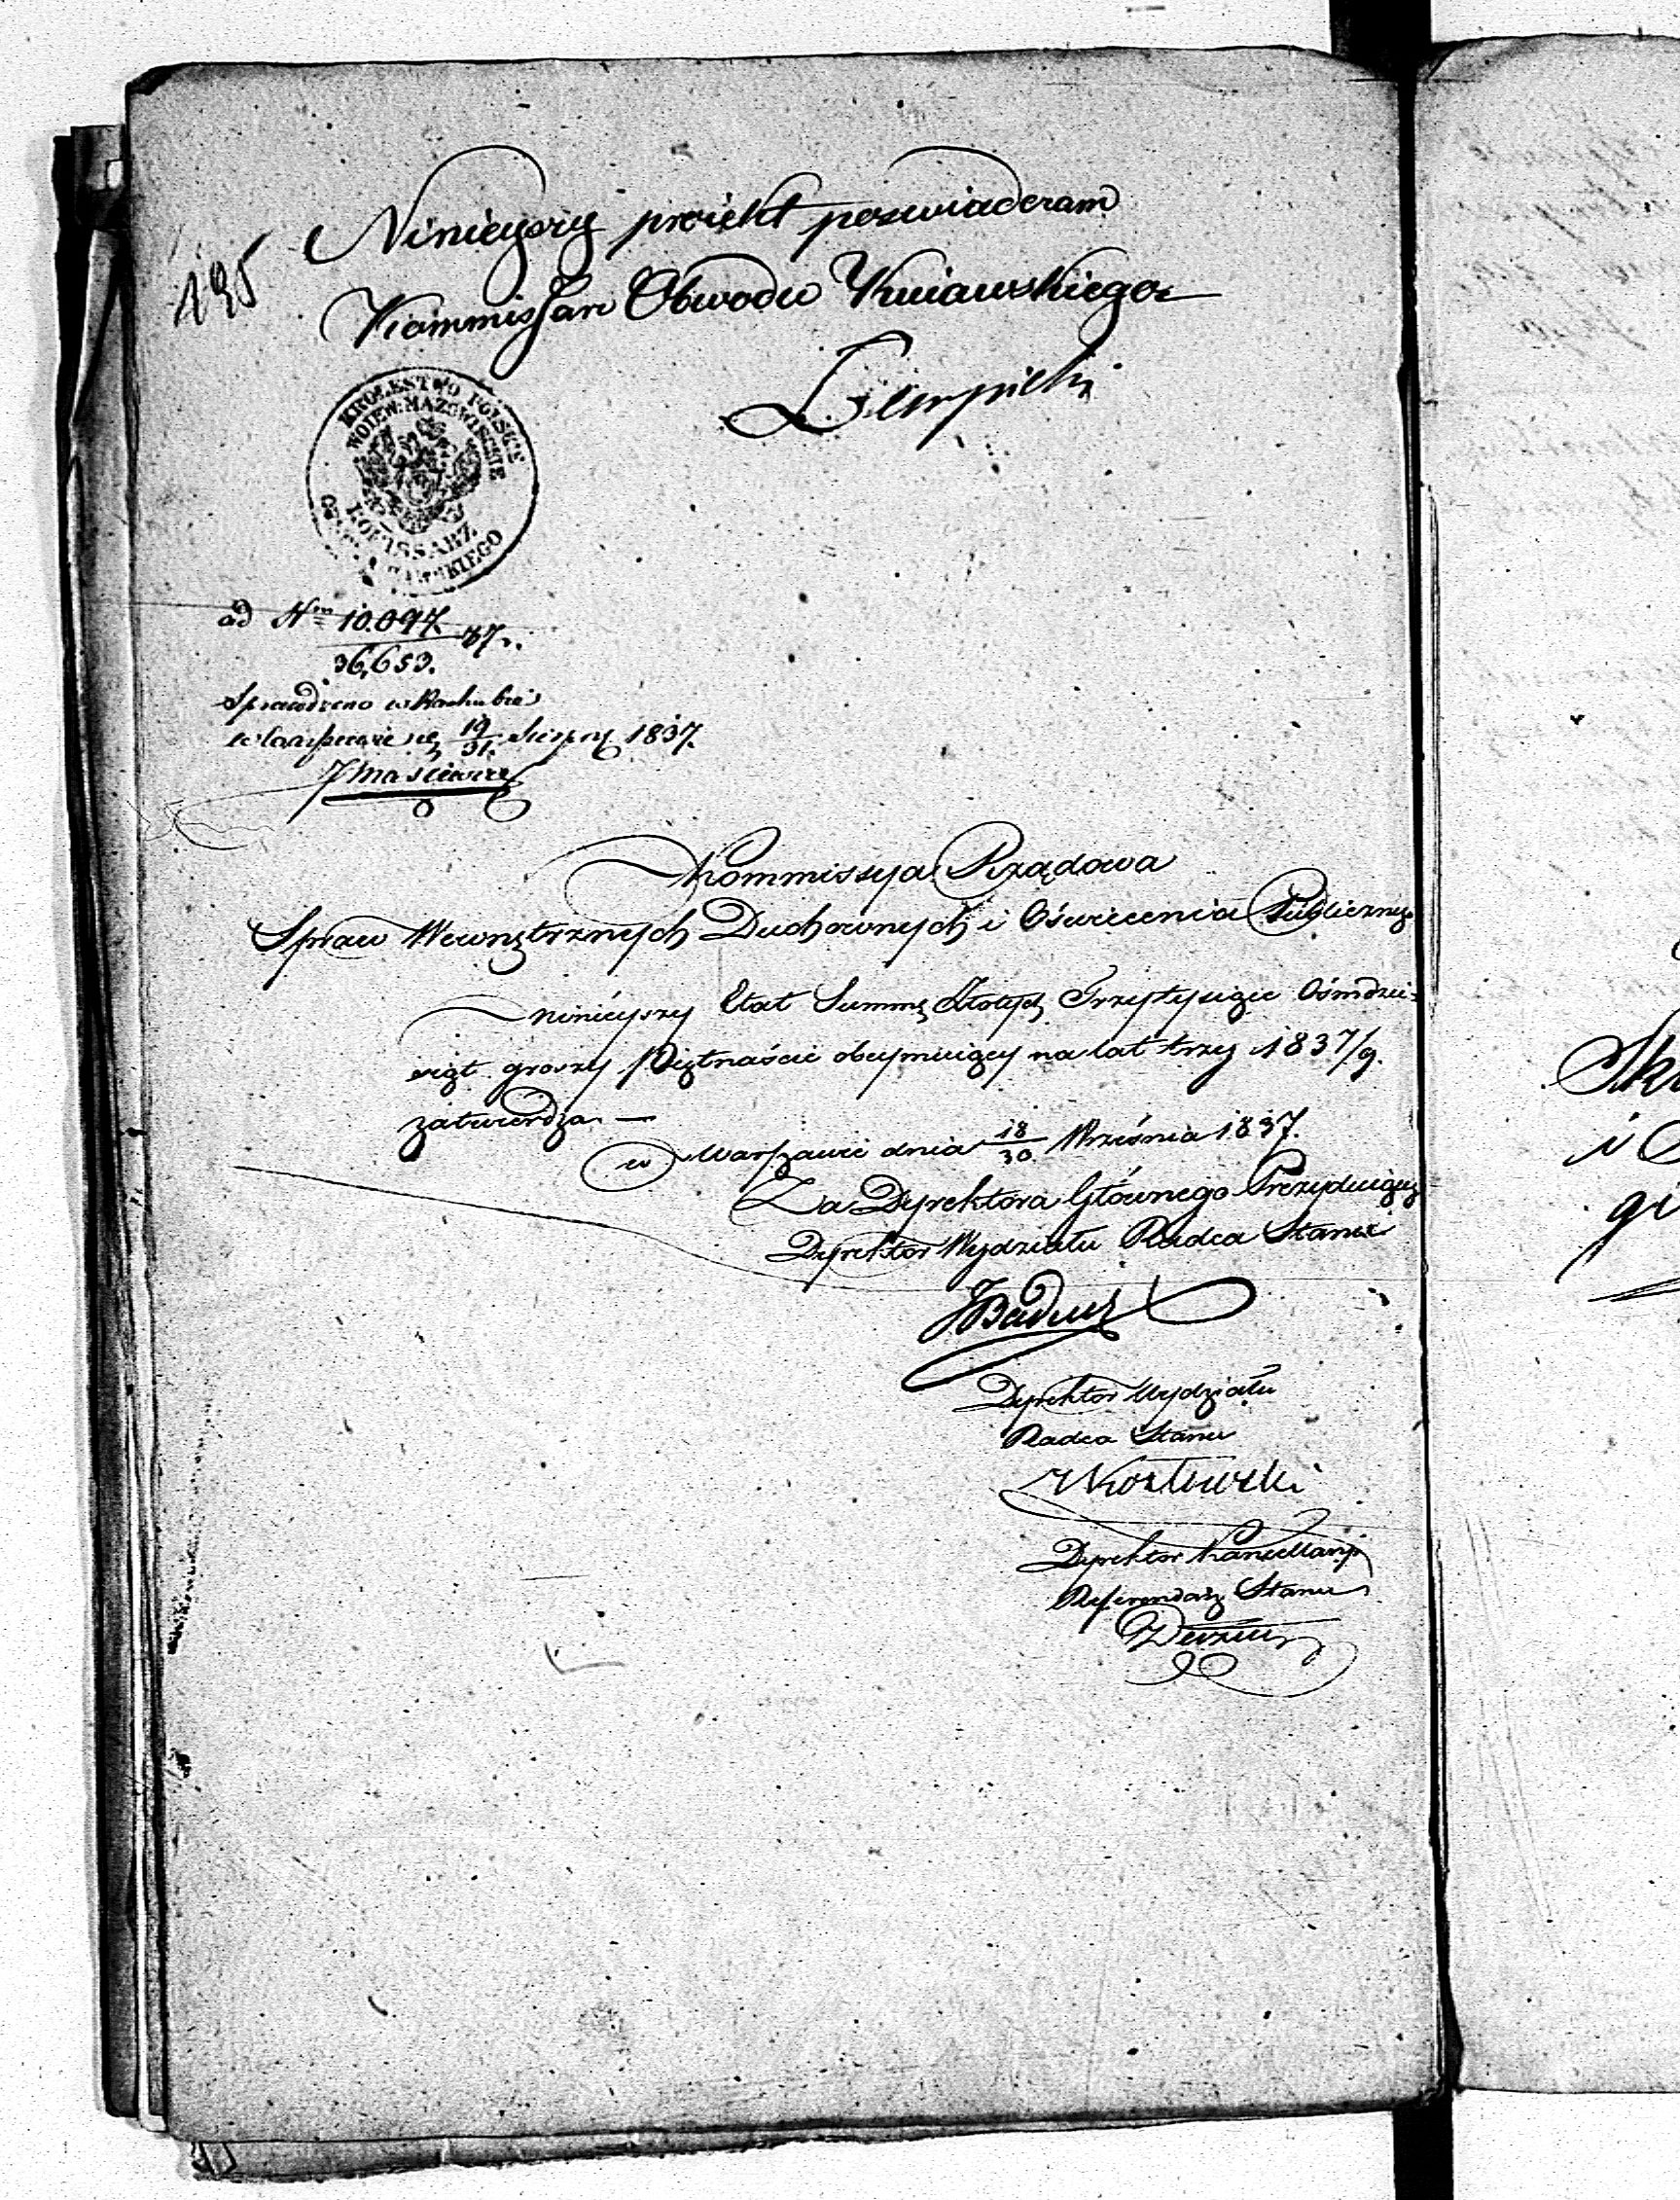 195
Ninieyszy proiekt poswiadczam
Kommissarz Obwodu Kuiawskiego
KROLESTWO POLSKIE
WOIEW: MAZOWIECKIE
KOMMISSARZ
ad Nrm 10.097/36,653. 37.
Sprawdzono w Rachubie
w Warszawie d. 19/31. Sierpnia 1837.
Kommissya Rządowa
Spraw Wewnętrznych Duchownych i Oświecenia Publicznego
ninieyszy Etat Summę Złotych Trzytysiące Ośmdzie-
siąt groszy Piętnaście obeymuiący na lat trzy 1837/9.
zatwierdza. —
w Warszawie dnia 18/30 Września 1837.
Za Dyrektora Głównego Prezyduiącego
Dyrektor Wydziału Radca Stanu
Dyrektor Wydziału
Radca Stanu
Kozłowski
Dyrektor Kancellaryi
Referendarz Stanu